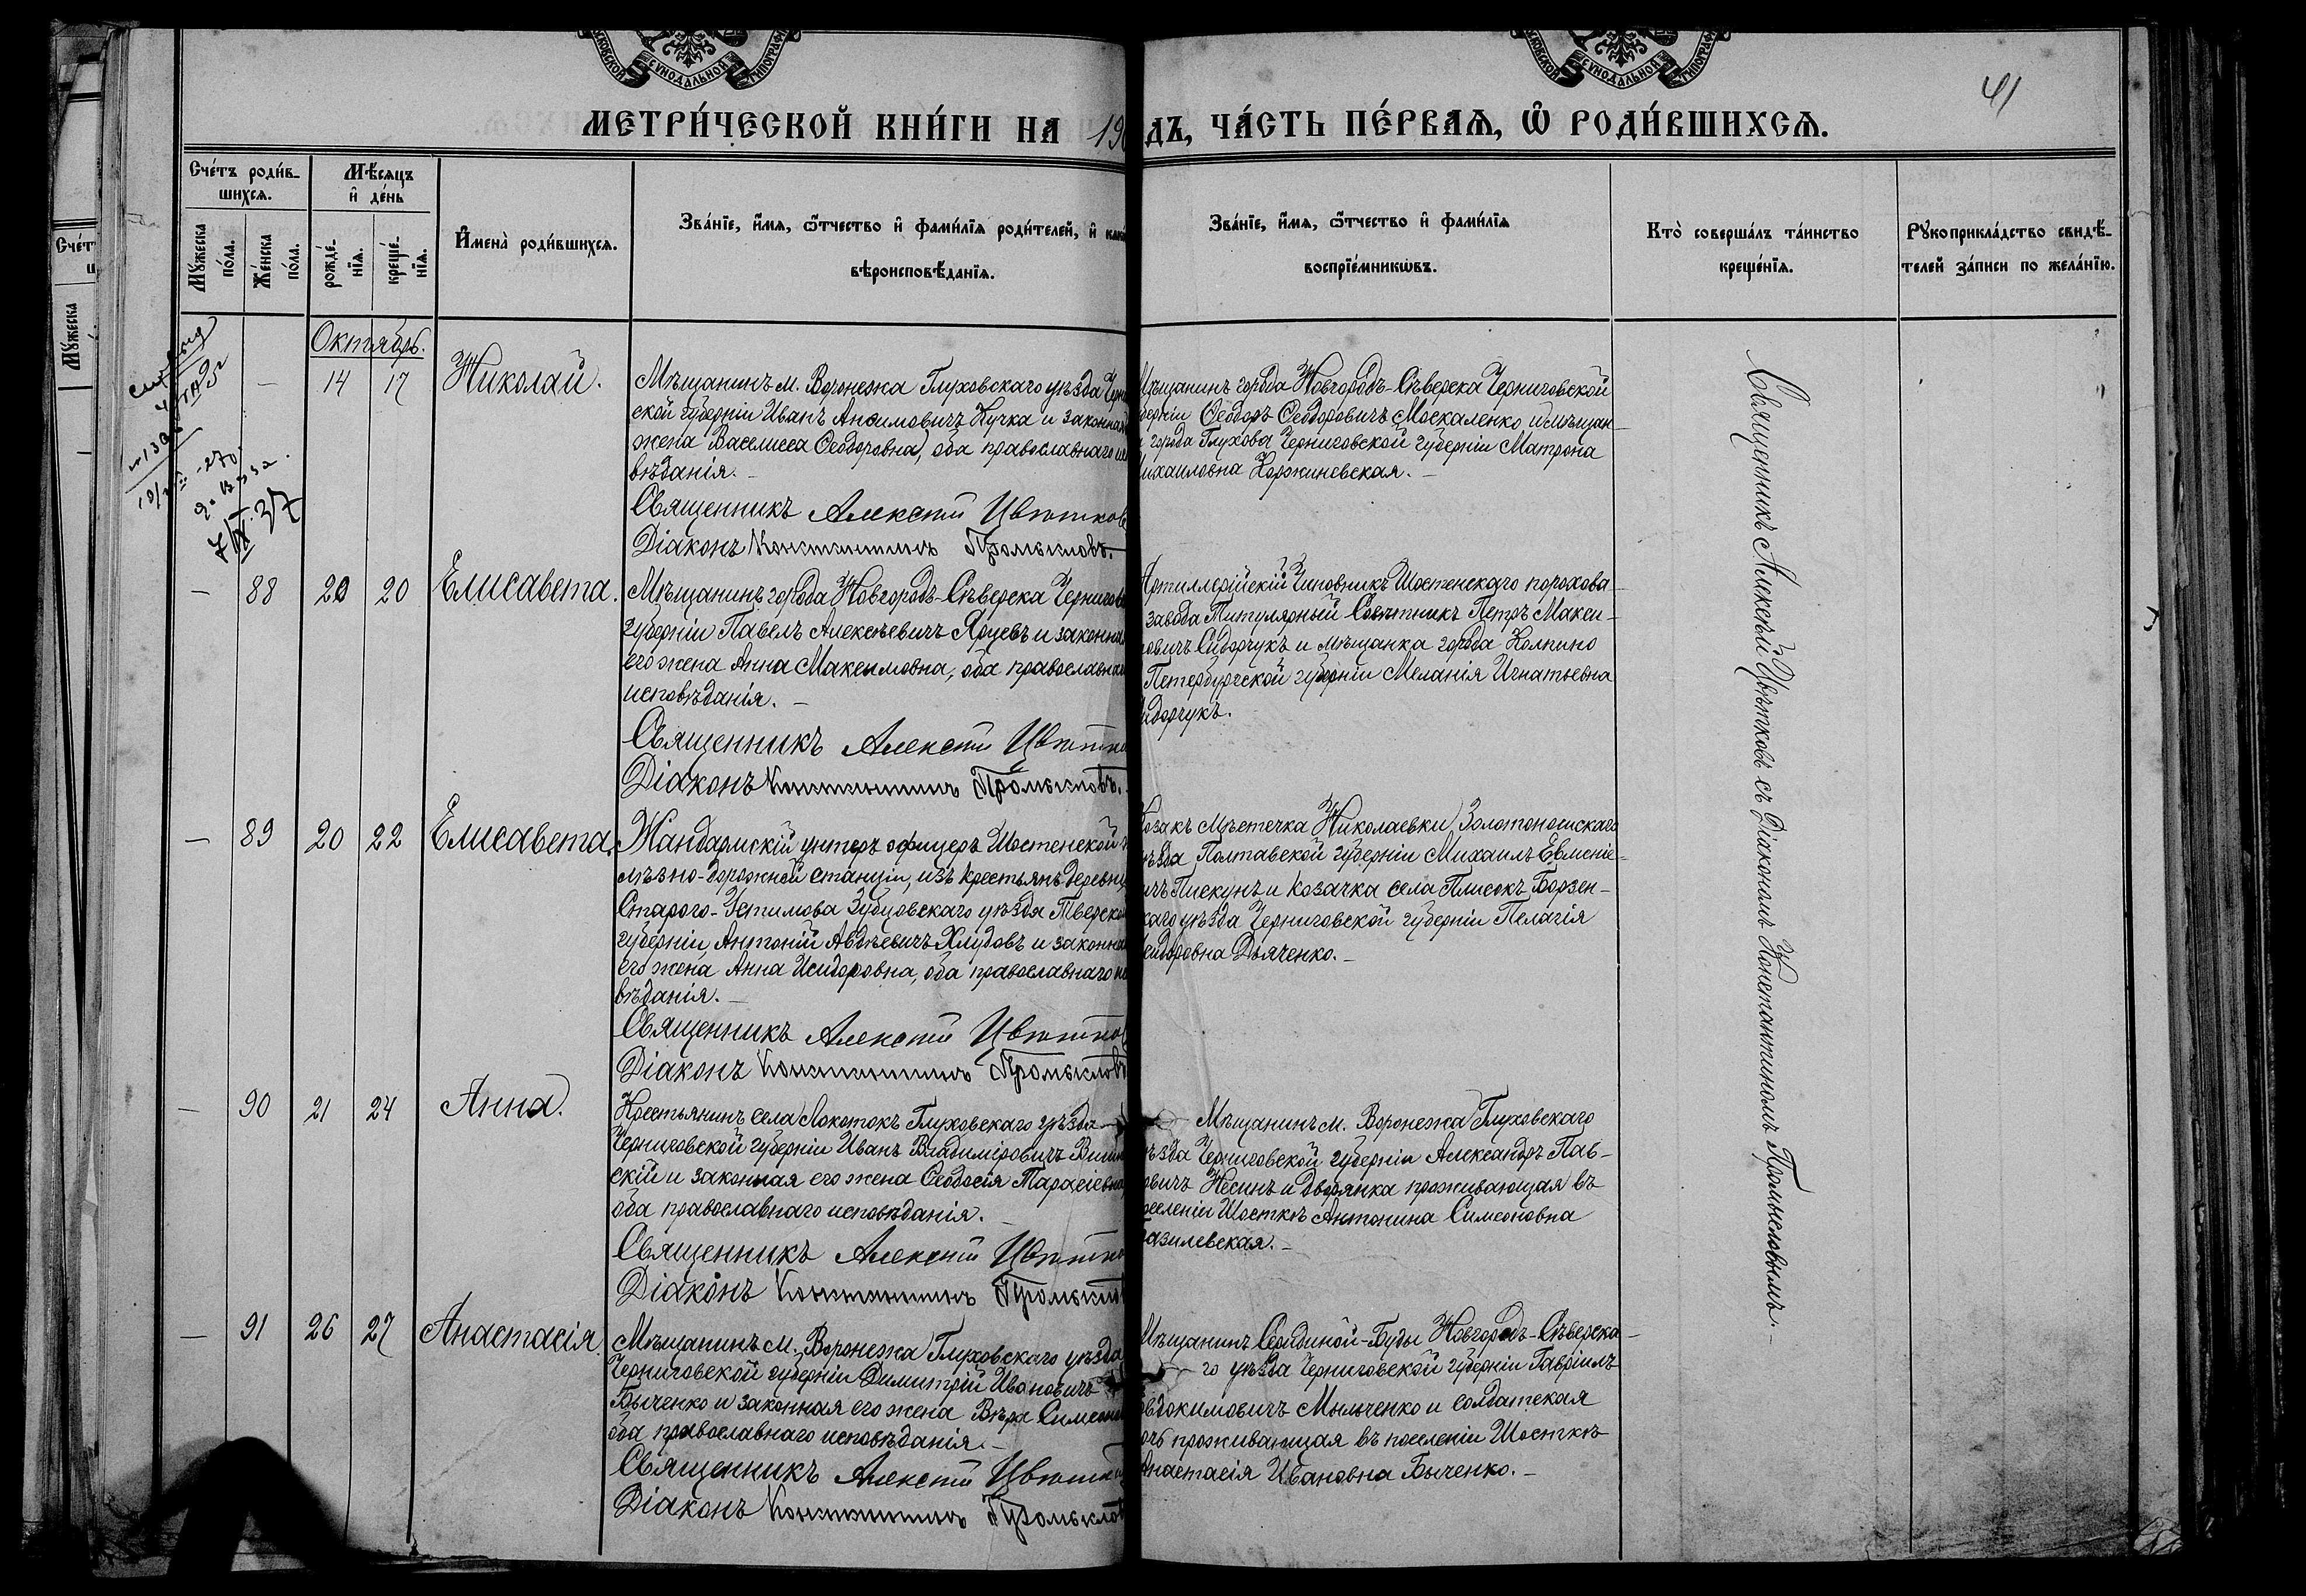 МОСКОВСКОЙ СѴНОДАЛЬНОЙ ТИПОГРАФІИ
МОСКОВСКОЙ СѴНОДАЛЬНОЙ ТИПОГРАФІИ
41
МЕТРИ́ЧЕСКОЙ КНИ́ГИ НА 190
ДЪ, ЧА́СТЬ ПЕ́РВАѦ, Ѡ҆ РОДИ́ВШИХСѦ.
Сче́тъ роди́в-
шихсѧ.
Мѣ́сяцъ
и҆ де́нь
Мꙋ́жеска
по́ла.
Же́нска
по́ла.
рожде́-
нїѧ.
креще́-
нїѧ.
И҆мена̀ роди́вшихсѧ.
Зва́нїе, и҆́мѧ, ѻ҆́тчество и҆ фами́лїѧ роди́телей, и҆
вѣроисповѣ́данїѧ.
Зва́нїе, и҆́мѧ, ѻ҆́тчество и҆ фами́лїѧ
воспрїе́мникѡвъ.
Кто̀ соверша́лъ та́инство
креще́нїѧ.
Рꙋкоприкла́дство свидѣ́-
телей за́писи по жела́нїю.
Октябрь.
— 14 17 Николай.
Мѣщанинъ м. Воронежа Глуховскаго уѣзда Черни
ской губерніи Иванъ Анисимовичъ Кучка и законная
жена Василисса Ѳеодоровна, оба православнаго ис
вѣданія. —
Священникъ Алексѣй Цвѣтков
Діаконъ Константинъ Промысловъ.
Мѣщанинъ города Новгородъ-Сѣверска Черниговской
берніи Ѳеодоръ Ѳеодоровичъ Москаленко и мѣщан-
города Глухова Черниговской губерніи Матрона
ихаиловна Коржиневская. —
7/IX 37
— 88 20 20 Елисавета.
Мѣщанинъ города Новгородъ-Сѣверска Чернигов
губерніи Павелъ Алексѣевичъ Ярцевъ и законна
его жена Анна Максимовна, оба православна
исповѣданія. —
Священникъ Алексѣй Цвѣтко
Діаконъ Константинъ Промысловъ.
Артиллерійскій Чиновникъ Шостенскаго порохова-
завода Титулярный Совѣтникъ Петръ Макси-
овичъ Сидорчукъ и мѣщанка города Колпино
Петербургской губерніи Меланія Игнатьевна
идорчукъ.
— 89 20 22 Елисавета.
Жандармскій унтеръ офицеръ Шостенской
лѣзно-дорожной станціи, изъ крестьянъ деревни
Старого-Устимова Зубцовскаго уѣзда Тверско
губерніи Антоній Авдѣевичъ Хлудовъ и законна
его жена Анна Исидоровна, оба православнаго
вѣданія. —
Священникъ Алексѣй Цвѣтков
Діаконъ Константинъ Промысловъ
Козакъ мѣстечка Николаевки Золотоношскаго
ѣзда Полтавской губерніи Михаилъ Евменіе-
ичъ Пискунъ и козачка села Плисокъ Борзен-
каго уѣзда Черниговской губерніи Пелагія
сидоровна Дьяченко. —
— 90 21 24 Анна.
Крестьянинъ села Локотокъ Глуховскаго уѣзда
Черниговской губерніи Иванъ Владиміровичъ
скій и законная его жена Ѳеодосія Тарасіевна,
оба православнаго исповѣданія. —
Священникъ Алексѣй Цвѣтко
Діаконъ Константинъ Промыслов
Мѣщанинъ м. Воронежа Глуховскаго
ѣзда Черниговской губерніи Александръ Пав-
овичъ Несинъ и дворянка проживающая въ
оселеніи Шосткѣ Антонина Симеоновна
азилевская. —
— 91 26 27 Анастасія.
Мѣщанинъ м. Воронежа Глуховскаго уѣзда
Черниговской губерніи Димитрій Ивановичъ
Быченко и законная его жена Вѣра Симеоно
оба православнаго исповѣданія. —
Священникъ Алексѣй Цвѣтков
Діаконъ Константинъ Промыслов
Мѣщанинъ Середивой-Буды Новгородъ-Сѣверска-
го уѣзда Черниговской губерніи Гавріилъ
вдокимовичъ Мыльченко и солдатская
очь проживающая въ поселеніи Шосткѣ
Анастасія Ивановна Быченко. —
Священникъ Алексѣй Цвѣтковъ съ Діакономъ Константиномъ Промысловымъ. —
Сче́т
Мꙋ́жеска